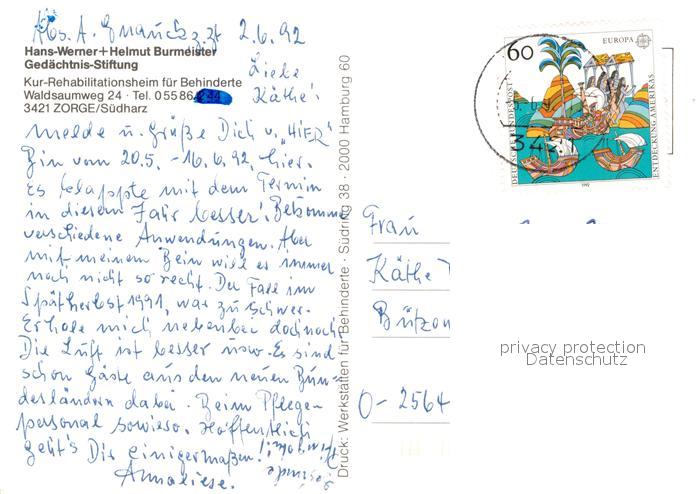 Abs. A. Gnauck z.Zt 2.6.92
Hans-Werner+Helmut Burmeister
Gedächtnis-Stiftung
Kur-Rehabilitationsheim für Behinderte
Waldsaumweg 24 · Tel. 05586
3421 ZORGE/Südharz
Liebe
Käthe!
melde u. Grüße Dich v. "HIER"
Bin vom 20.5. - 16.6.92, hier.
Es klappte mit dem Termin
in diesem Jahr besser! Bekomme
verschiedene Anwendungen. Aber
mit meinem Bein will es immer
noch nicht so recht. Der Fall im
Spätherbst 1991, war zu schwer.
Erhole mich nebenbei doch noch
Die Luft ist besser usw. Es sind
schon Gäste aus den neuen Bun-
desländern dabei. Beim Pflege-
personal sowieso. Hoffentlich
geht's Dir einigermaßen!
Annaliese.
Druck: Werkstätten für Behinderte · Südring 38 · 2000 Hamburg 60
60
EUROPA
DEUTSCHE BUNDESPOST
ENTDECKUNG AMERIKAS
1992
342
Frau
Käthe
Bützow
O-2564
privacy protection
Datenschutz